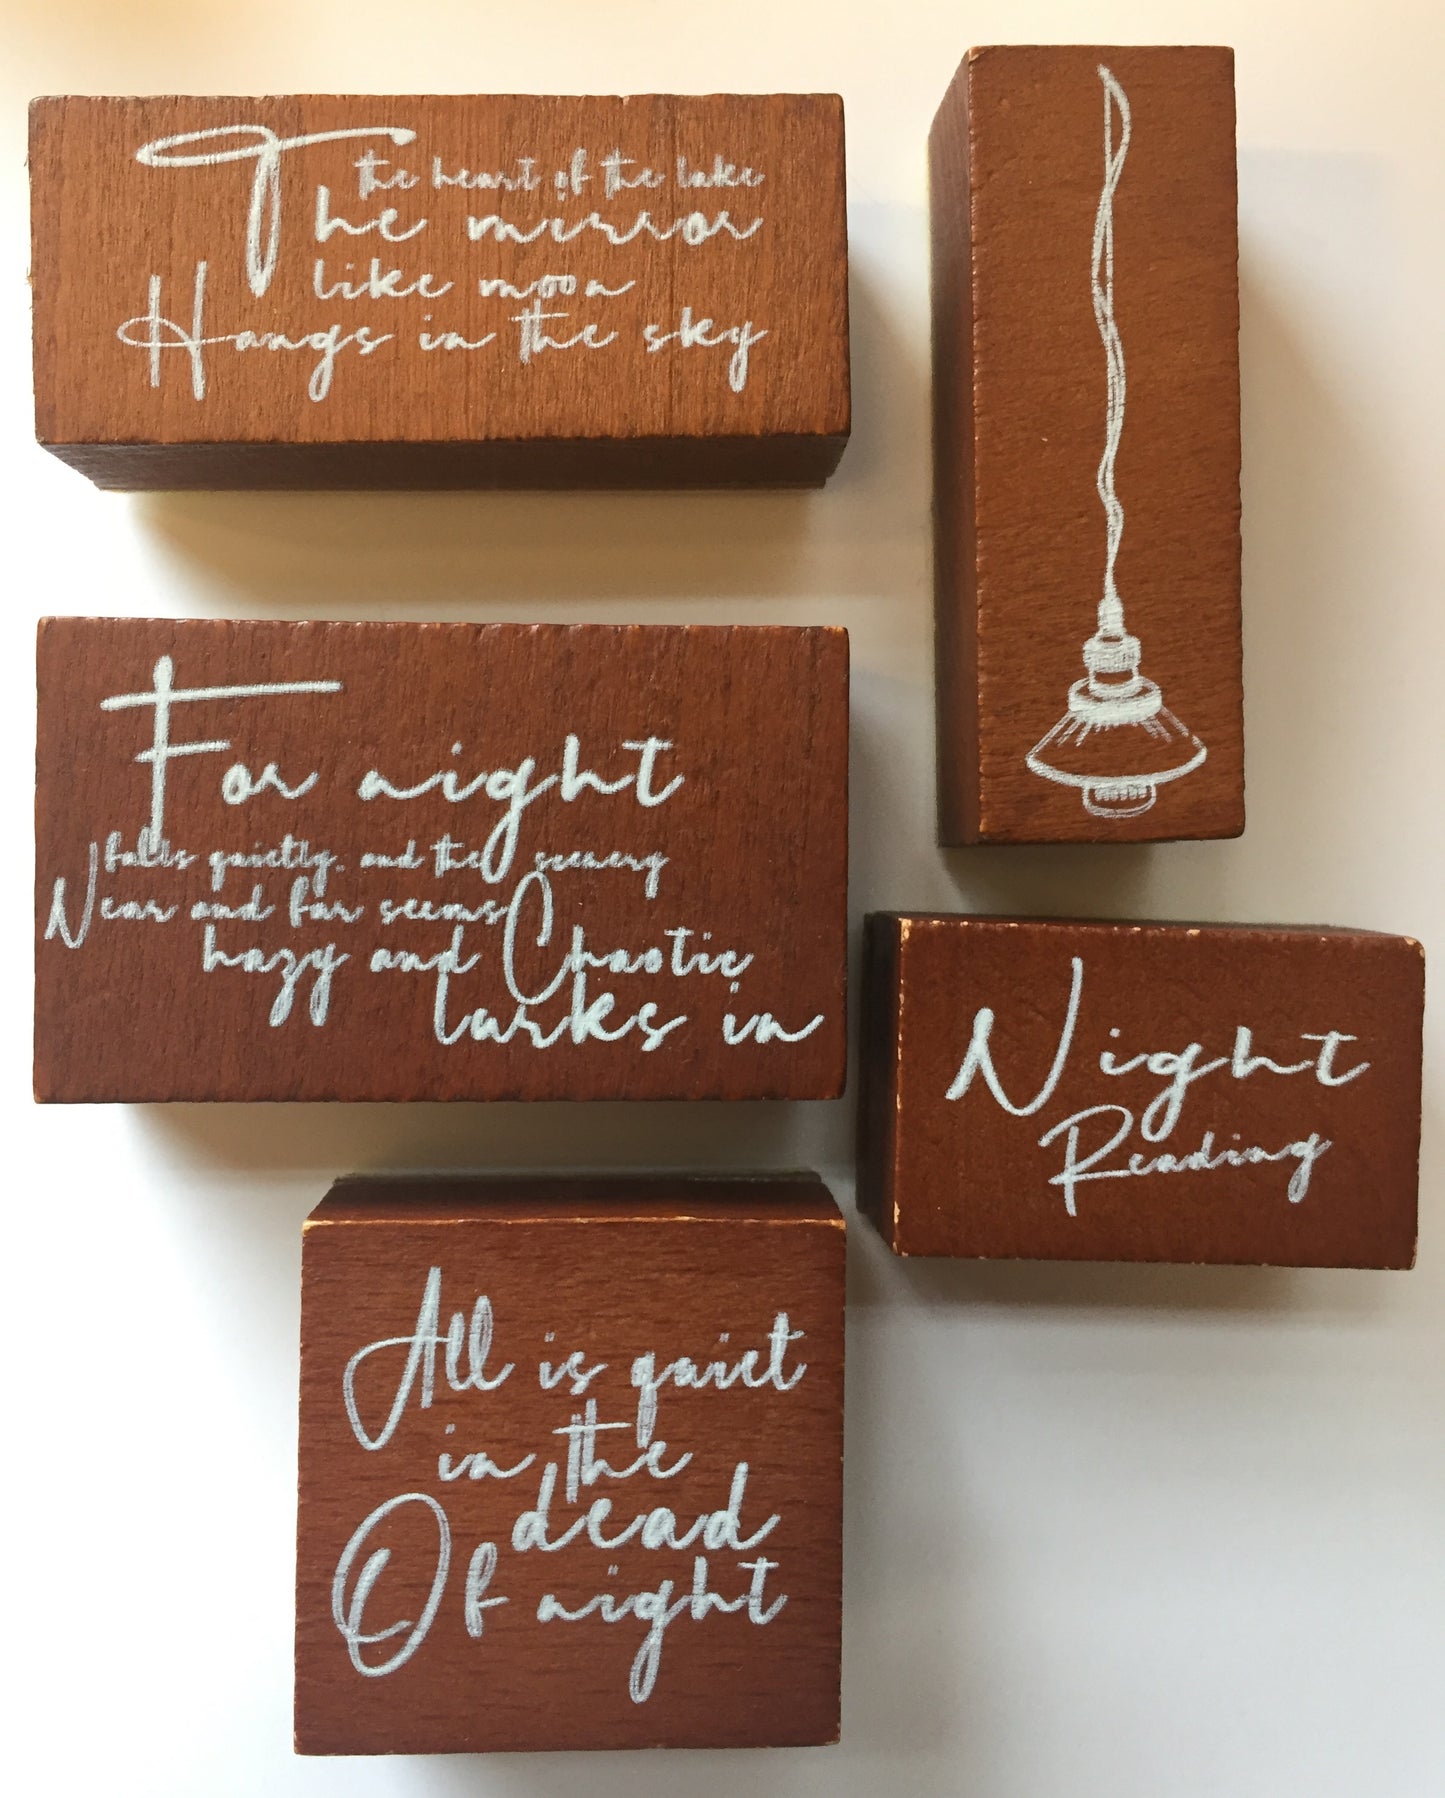 the heart of the lake
The mirror
like moon
Hangs in the sky
For night
falls quietly. and the scenery
Near and far seems
hazy and Chaotic
larks in
Night
Reading
All is quiet
in the
dead
Of night